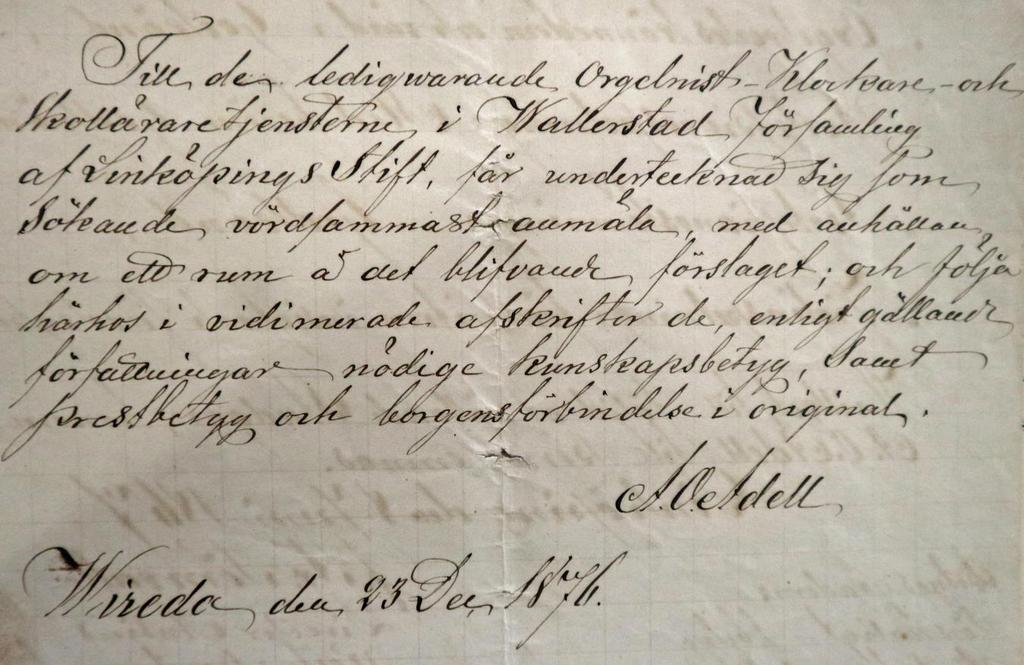 Till de ledigwarande Orgelnist-Klockare-och
Skolläraretjensterne i Wallerstad Församling
af Linköpings Stift, får undertecknad sig som
sökande vördsammast anmäla, med anhållan
om ett rum å det blifvande förslaget; och följa
härhos i vidimerade afskrifter de, enligt gällande
författningar nödige kunskapsbetyg, samt
prestbetyg och borgensförbindelse i original.
A.O. Adell
Wireda den 23 Dec 1876.